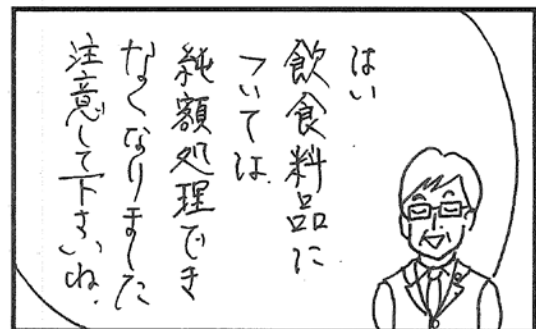 はい
飲食料品に
ついては、
純額処理でき
なくなりました
注意して下さいね、